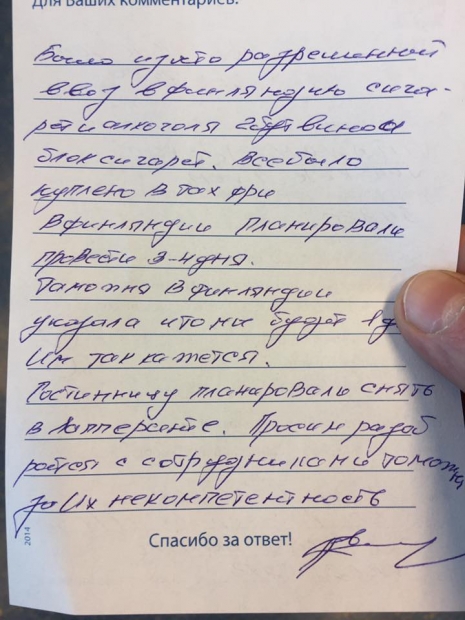 Для Ваших комментариев:
Было изято разрешенной
ввоз в финляндию сига-
рет и алкоголя вино
блок сигарет. Все было
куплено в такс фри
В финляндии планировали
провести 3-4 дня.
Таможня в финляндии
указала что мы будем 1 д
Им так кажется.
Гостинницу планировали снять
в Лапперанте. Просим разоб
ратся с сотрудниками таможни
за их некомпетентность
2014
Спасибо за ответ!